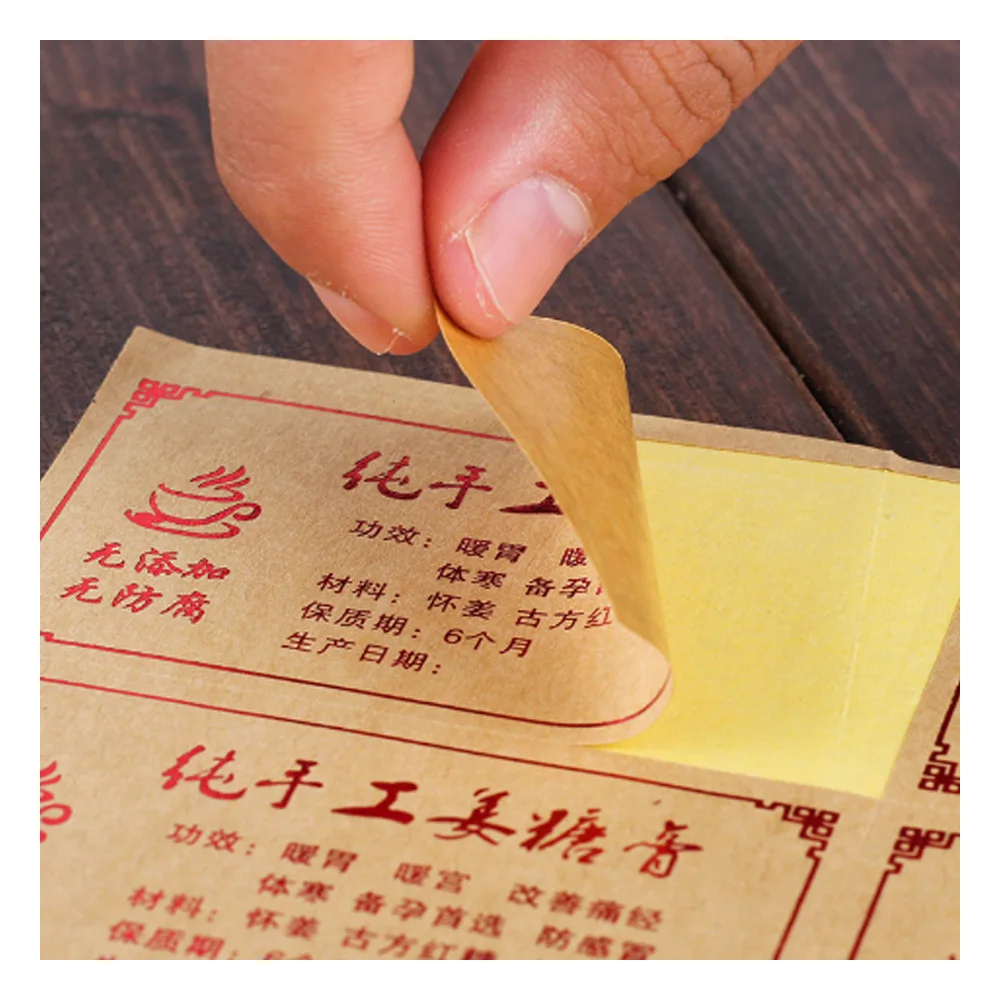 纯手工
功效：暖胃 暖
体寒 备孕
材料：怀姜 古方红
保质期：6个月
生产日期：
无添加
无防腐
纯手工姜糖膏
功效：暖胃 暖宫 改善痛经
体寒 备孕首选 防感冒
材料：怀姜 古方红糖
保质期：6个